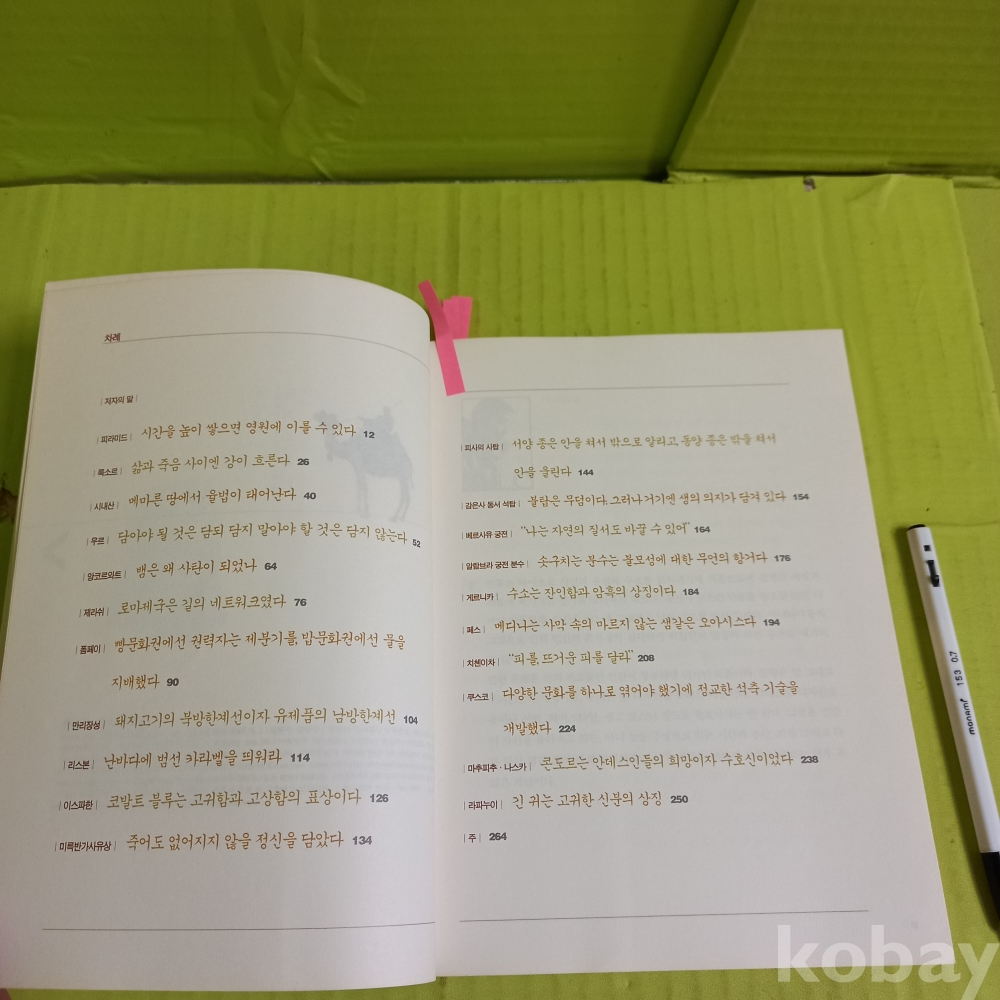 차례
|저자의 말|
|피라미드| 시간을 높이 쌓으면 영원에 이를 수 있다 12
|룩소르| 삶과 죽음 사이엔 강이 흐른다 26
|시내산| 메마른 땅에서 율법이 태어난다 40
|우르| 담아야 될 것은 담되 담지 말아야 할 것은 담지 않는다 52
|앙코르와트| 뱀은 왜 사탄이 되었나 64
|제라쉬| 로마제국은 길의 네트워크였다 76
|폼페이| 빵문화권에선 권력자는 제분기를, 밥문화권에선 물을
지배했다 90
|만리장성| 돼지고기의 북방한계선이자 유제품의 남방한계선 104
|리스본| 난바다에 범선 카라벨을 띄워라 114
|이스파한| 코발트 블루는 고귀함과 고상함의 표상이다 126
|미륵반가사유상| 죽어도 없어지지 않을 정신을 담았다 134
|피사의 사탑| 서양 종은 안을 쳐서 밖으로 알리고, 동양 종은 밖을 쳐서
안을 울린다 144
|감은사 동서 석탑| 불탑은 무덤이다. 그러나 거기엔 생의 의지가 담겨 있다 154
|베르사유 궁전| "나는 자연의 질서도 바꿀 수 있어" 164
|알람브라 궁전 분수| 솟구치는 분수는 불모성에 대한 무언의 항거다 176
|게르니카| 수소는 잔인함과 암흑의 상징이다 184
|페스| 메디나는 사막 속의 마르지 않는 샘같은 오아시스다 194
|치첸이차| "피를, 뜨거운 피를 달라" 208
|쿠스코| 다양한 문화를 하나로 엮어야 했기에 정교한 석축 기술을
개발했다 224
|마추피추·나스카| 콘도르는 안데스인들의 희망이자 수호신이었다 238
|라파누이| 긴 귀는 고귀한 신분의 상징 250
|주| 264
monami 153 0.7
kobay